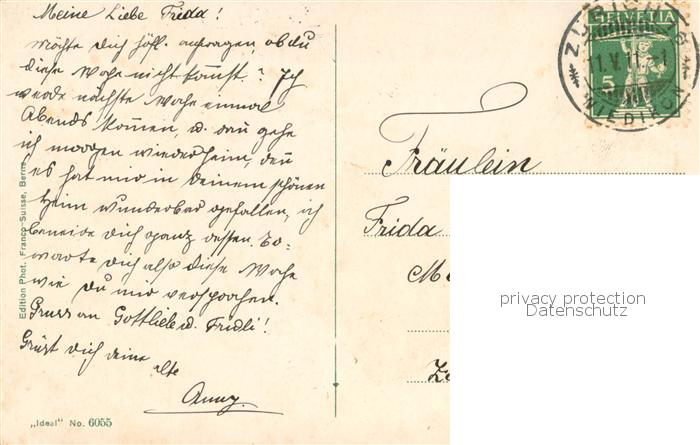 Meine Liebe Frida!
möchte Dich höfl. anfragen, ob du
diese Woche nicht kommst? Ich
werde nächste Woche einmal
Abends kommen, u. dann gehe
ich morgen wieder heim, denn
es hat mir in Deinem schönen
Heim wunderbar gefallen, ich
beneide Dich ganz dessen. Er=
warte Dich also diese Woche
wie Du mir versprochen.
Gruss an Gottlieb u. Fridli!
Grüst Dich deine
alte
Anny.
Edition Phot. Franco-Suisse, Berne
„Ideal" No. 6055
HELVETIA
5
ZÜRICH
11.V.11.
WIEDIKON
Fräulein
Frida
privacy protection
Datenschutz